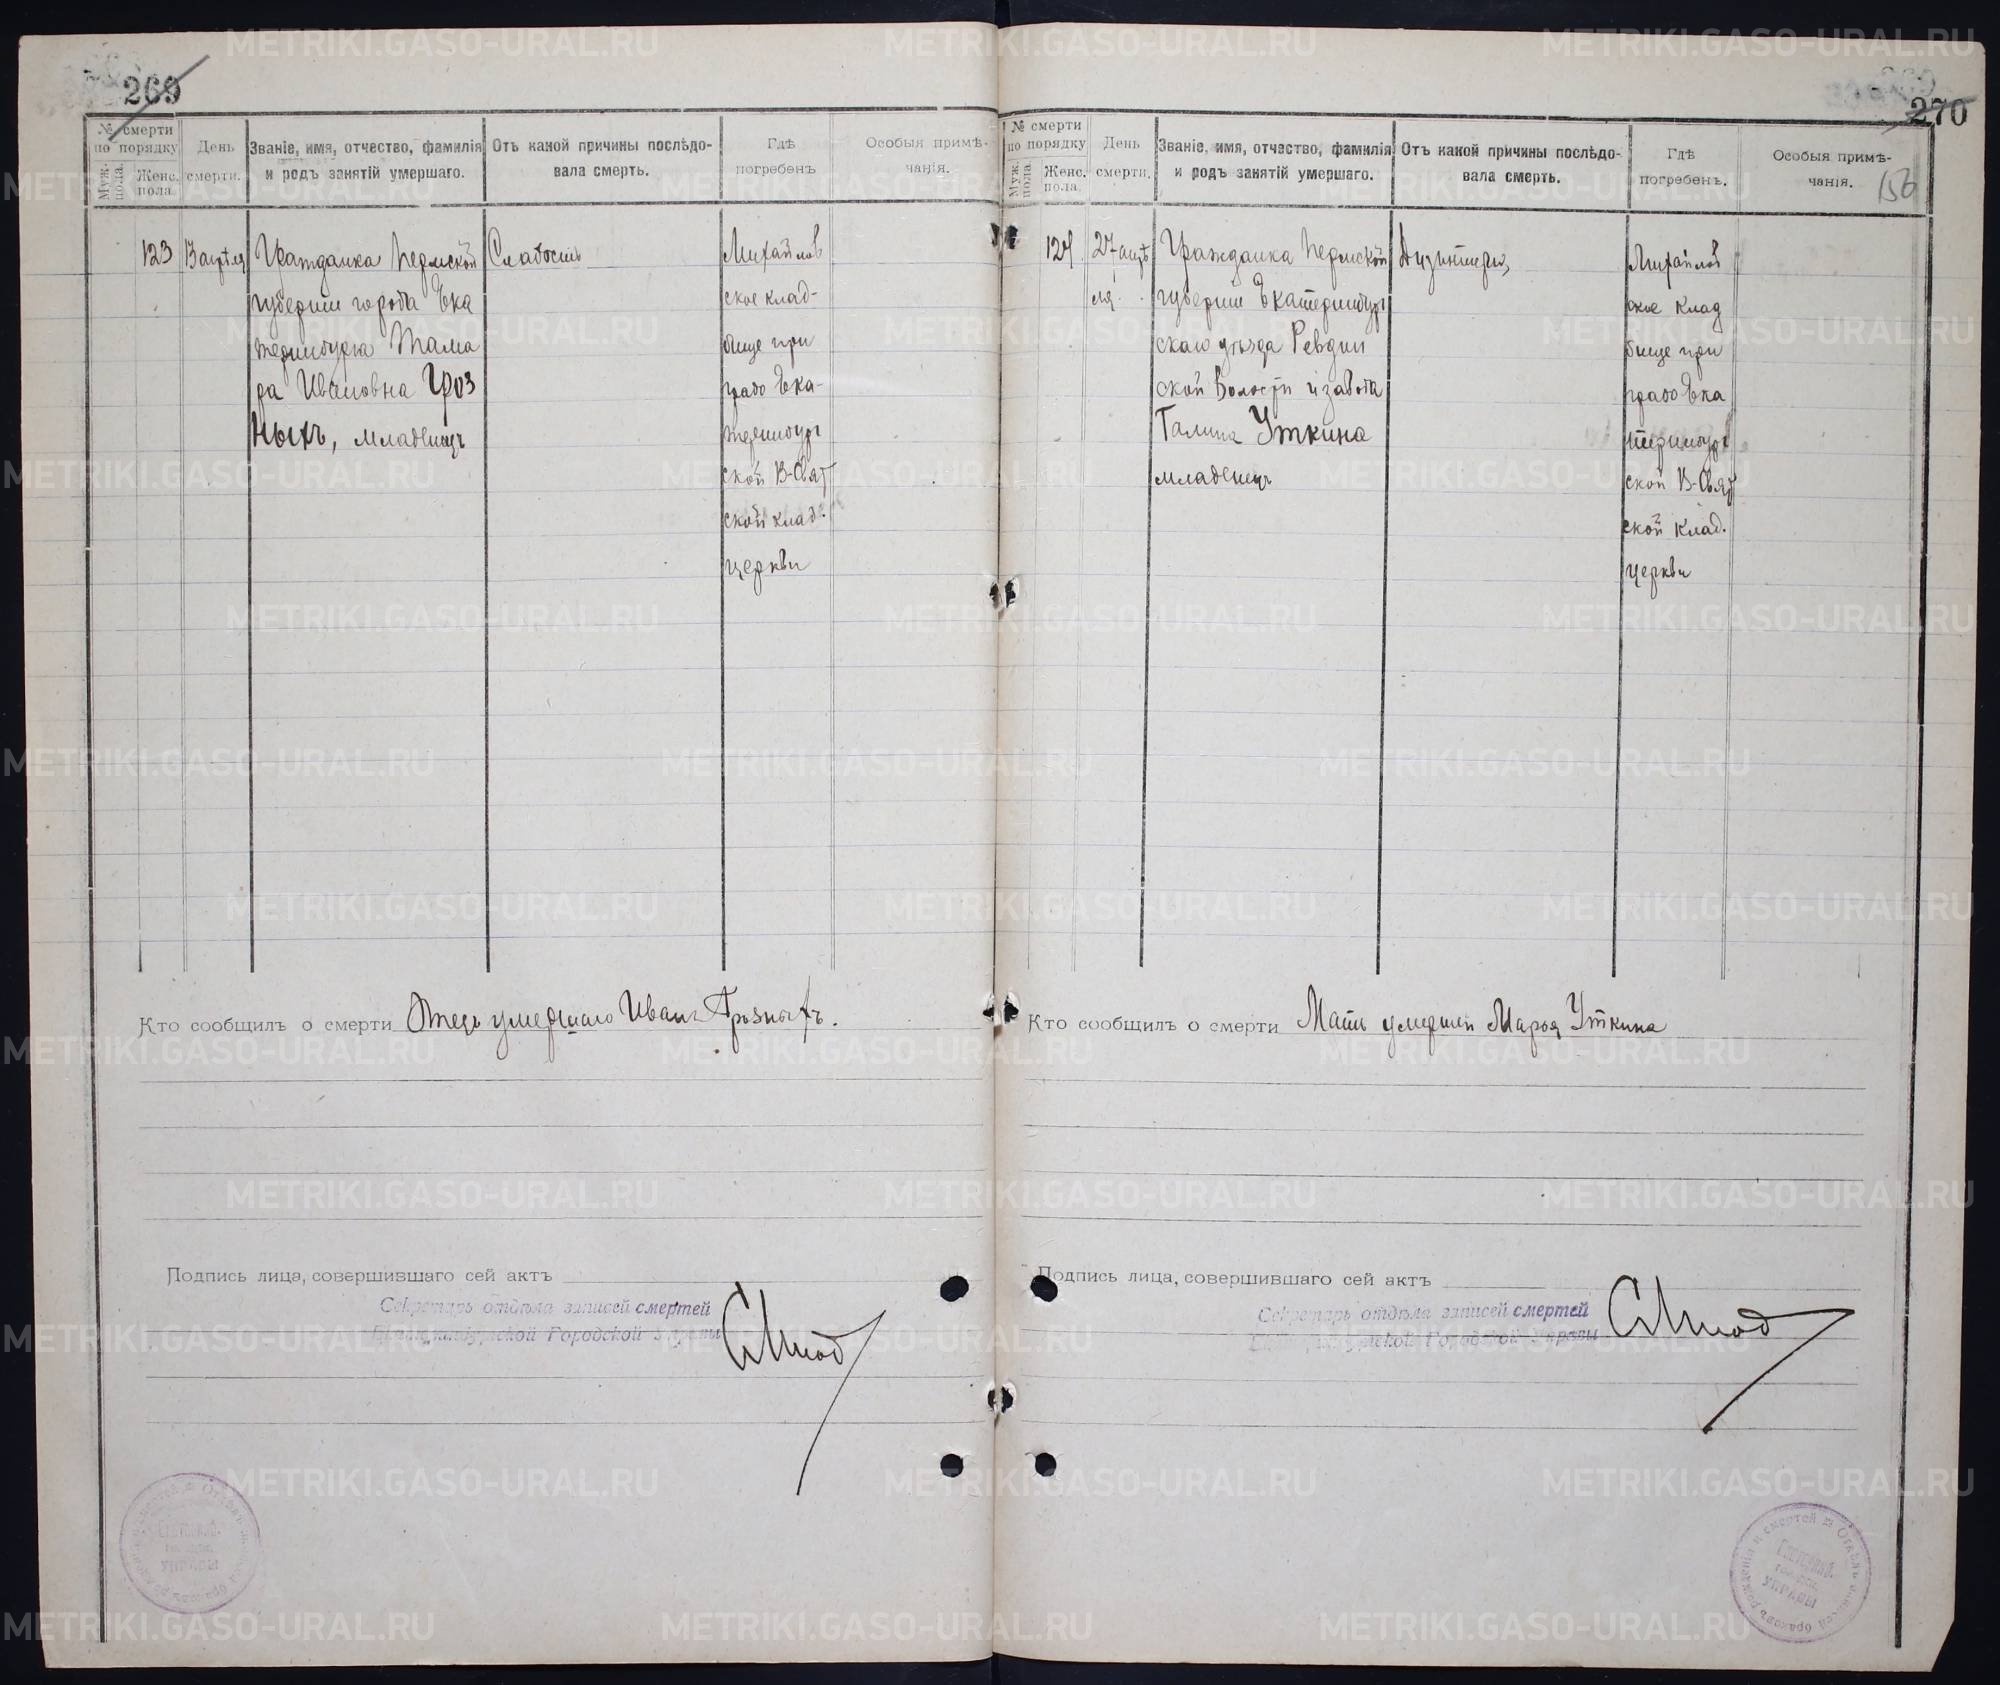 269
№ смерти
по порядку
Муж. пола.
Женс. пола.
День
смерти.
Званіе, имя, отчество, фамилія
и родъ занятій умершаго.
Отъ какой причины послѣдо-
вала смерть.
Гдѣ
погребенъ
Особыя примѣ-
чанія.
123
13 апрѣля
Гражданка Пермской
губерніи города Ека
теринбурга Тама
ра Ивановна Гроз
ныхъ, младенецъ
Слабость
Михайлов
ское клад-
бище при
градо Ека-
теринбург
ской В-Свят
ской клад.
церкви
Кто сообщилъ о смерти Отецъ умершаго Иванъ Грозныхъ.
Подпись лица, совершившаго сей актъ
Секретарь отдѣла записей смертей
Екатеринбургской Городской Управы
УПРАВЫ
270
156
№ смерти
по порядку
Муж. пола
Женс. пола.
День
смерти.
Званіе, имя, отчество, фамилія
и родъ занятій умершаго.
Отъ какой причины послѣдо-
вала смерть.
Гдѣ
погребенъ.
Особыя примѣ-
чанія.
124
27 апрѣ
ля
Гражданка Пермской
губерніи Екатеринбург
скаго уѣзда Ревдин
ской Волости и завода
Галина Уткина
младенецъ
Дизентерія
Михайлов
ское клад
бище при
градо Ека
теринбург
ской В-Свят
ской клад.
церкви
Кто сообщилъ о смерти Мать умершей Марья Уткина
Подпись лица, совершившаго сей актъ
Секретарь отдѣла записей смертей
Екатеринбургской Городской Управы
УПРАВЫ
METRIKI.GASO-URAL.RU